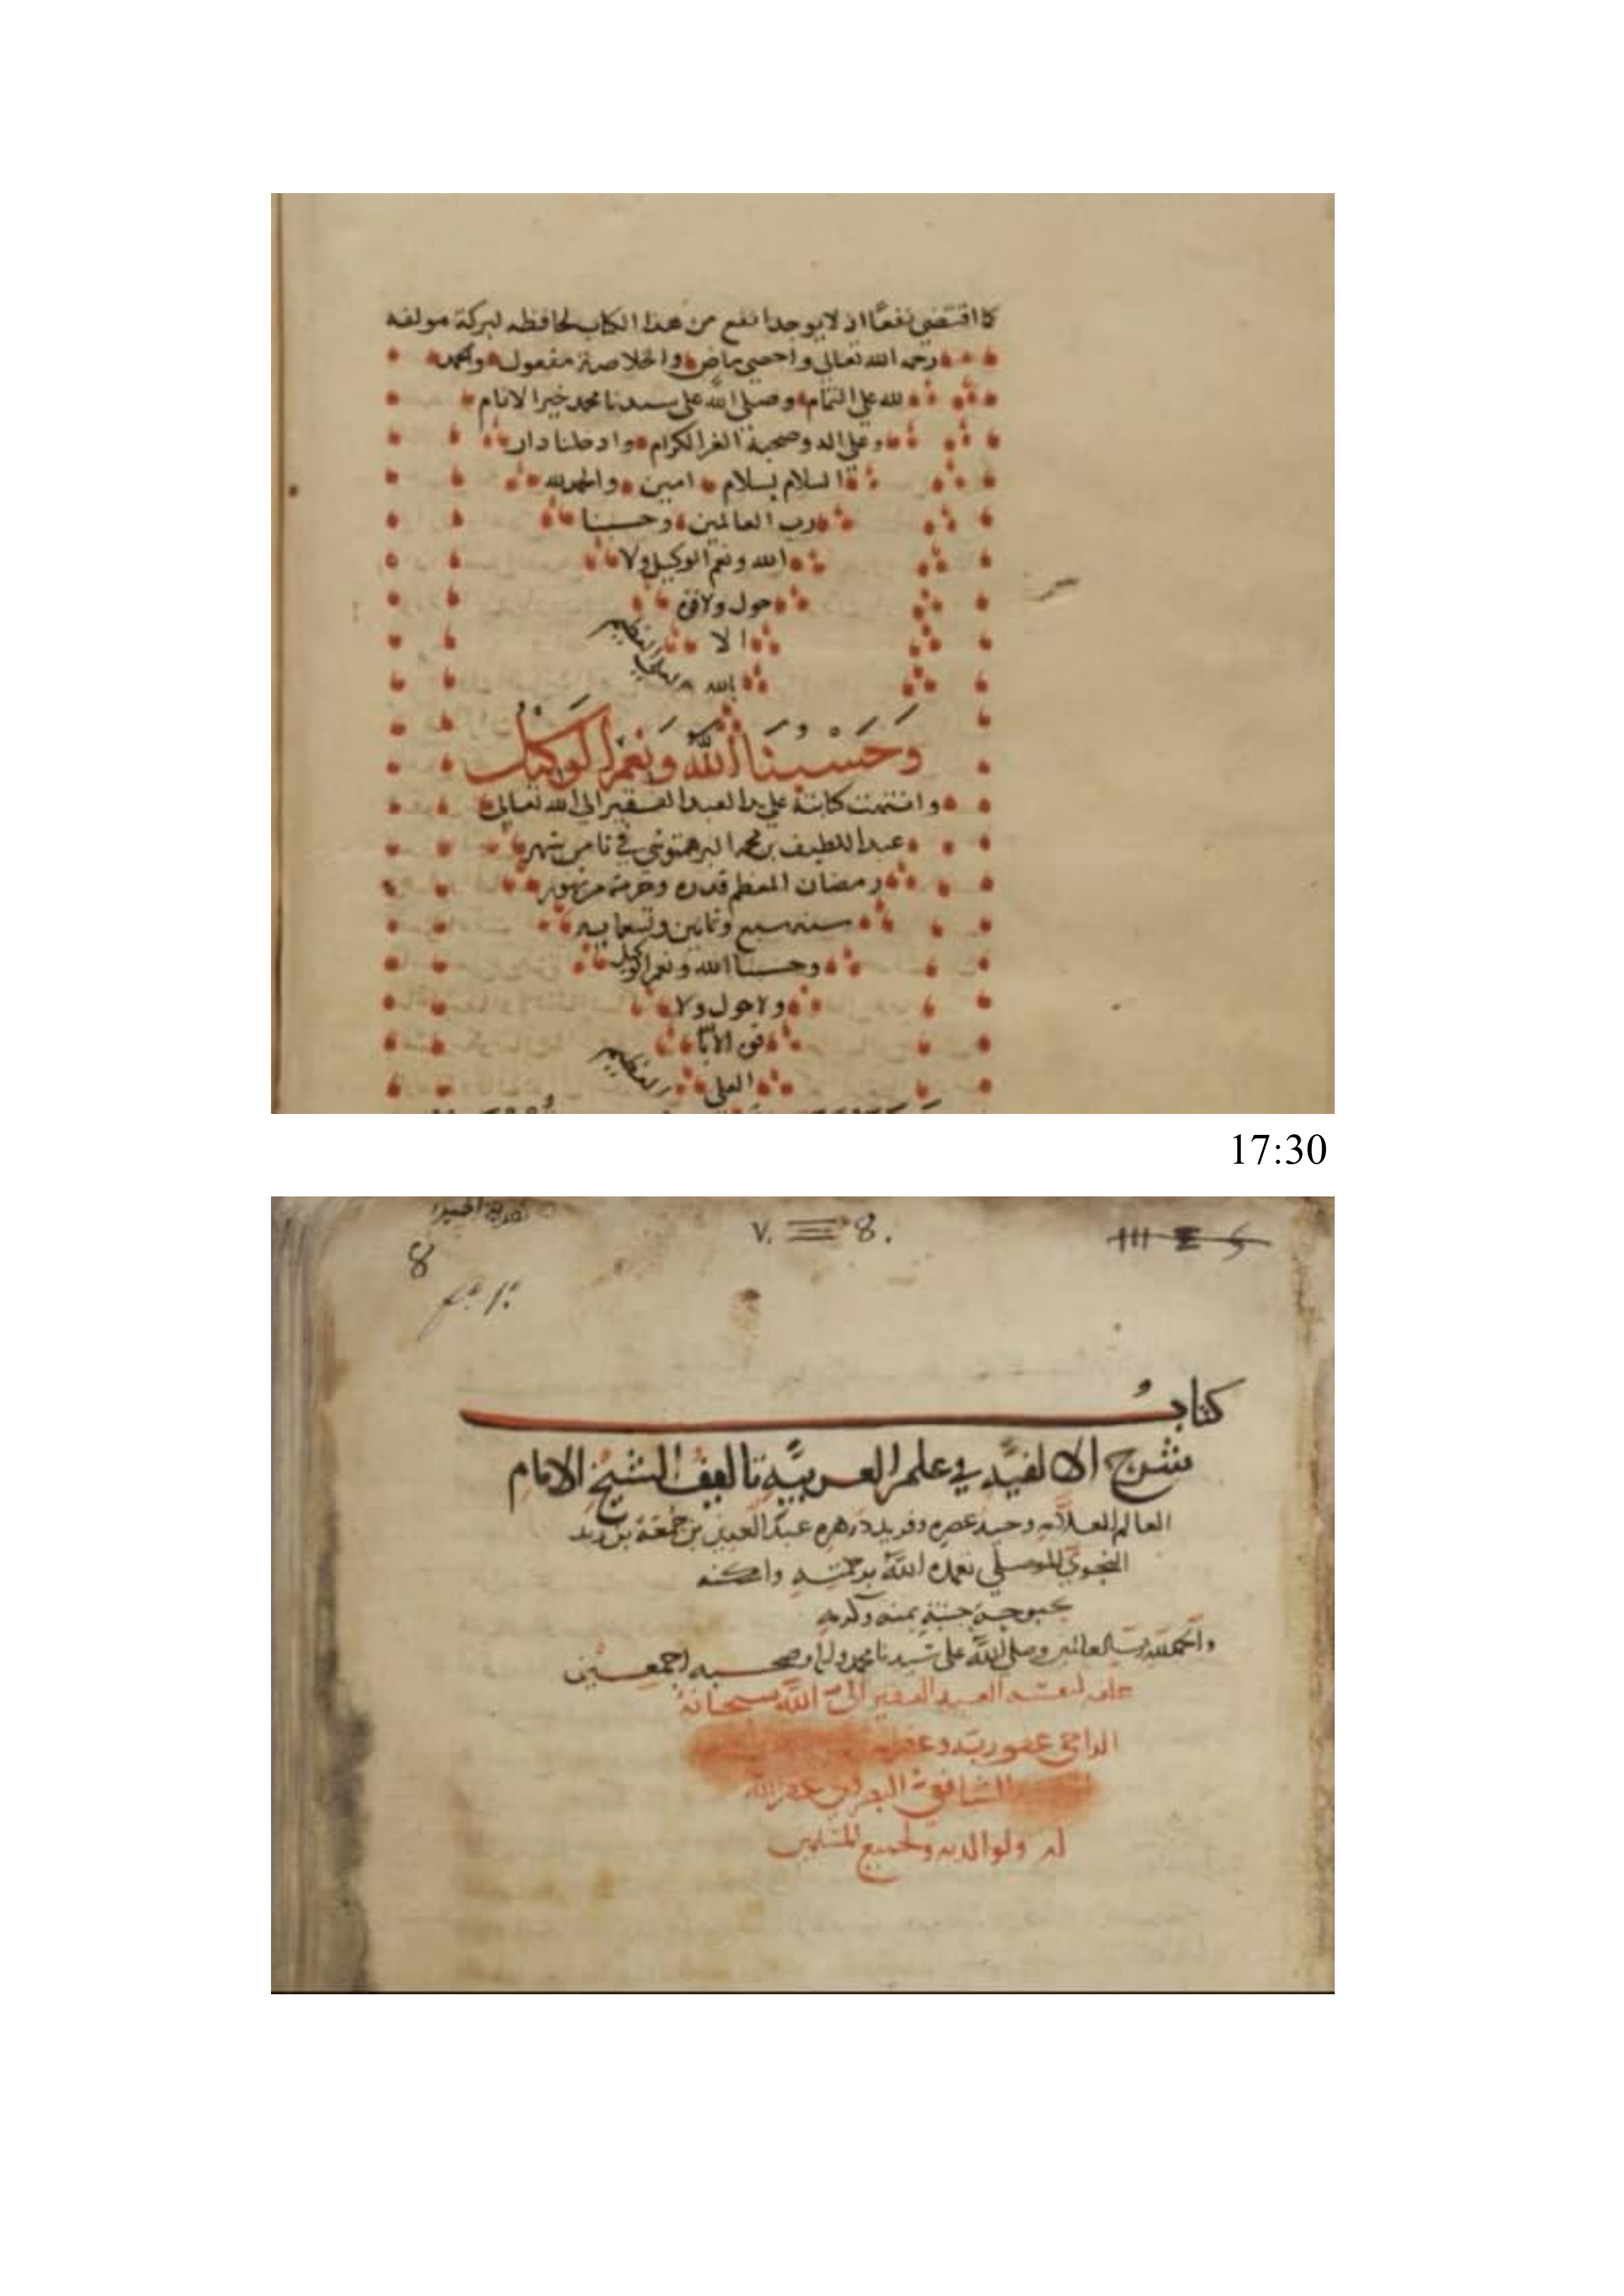 كما اقتضى نفعًا اذ لا يوجد انفع من هذا الكتاب لحافظه لبركة مولفه
رحمه الله تعالى واحصى ماض والخلاصة مفعول والحمد
لله على التمام وصلى الله على سيدنا محمد خير الانام
وعلى اله وصحبه الغر الكرام وادخلنا دار
السلام بسلام امين والحمد لله
رب العالمين وحسبنا
الله ونعم الوكيل ولا
حول ولا قوة
الا
بالله العلي العظيم
وَحَسْبُنَا اللَّهُ وَنِعْمَ الْوَكِيلُ
وانتهت كتابته على يد العبد الفقير الى الله تعالى
عبد اللطيف بن محمد البرهمتوشي في ثامن شهر
رمضان المعظم قدره وحرمته من شهور
سنه سبع وثمانين وتسعمايه
وحسبنا الله ونعم الوكيل
ولا حول ولا
قوه الا بالله
العلي العظيم
17:30
8
٧. 8.
كتابُ
شرح الالفيَّه في علم العربيَّة تاليف الشيخ الامام
العالم العلاَّمه وحيد عصره وفريد دهره عبد العزيز بن جُمعَة بن زيد
النحوي الموصلي تغمده اللَّه برحمته واسكنه
بحبوحة جنته بمنه وكرمه
والحمد لله رب العالمين وصلى اللَّه على سيدنا محمد واله وصحبه اجمعين
علقه لنفسه العبد الفقير الى اللَّه سبحانه
الراجى عفو ربه وغفر
الشافعي غفر الله
له ولوالديه ولجميع المسلمين